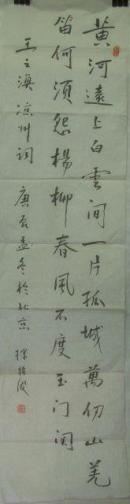 黃河遠上白雲間一片孤城萬仞山羌
笛何須怨楊柳春風不度玉门関
王之渙凉州詞 庚辰孟冬於北京